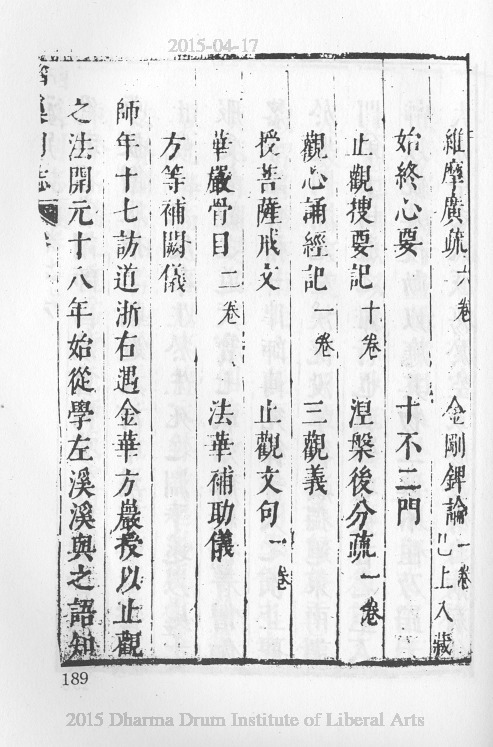 2015-04-17
維摩廣疏 六卷 金剛錍論 一卷 已上入藏
始終心要 十不二門
止觀搜要記 十卷 涅槃後分疏 一卷
觀心誦經記 一卷 三觀義
授菩薩戒文 止觀文句 一卷
華嚴骨目 二卷 法華補助儀
方等補闕儀
師年十七訪道浙右遇金華方巖授以止觀
之法開元十八年始從學左溪溪與之語知
189
2015 Dharma Drum Institute of Liberal Arts